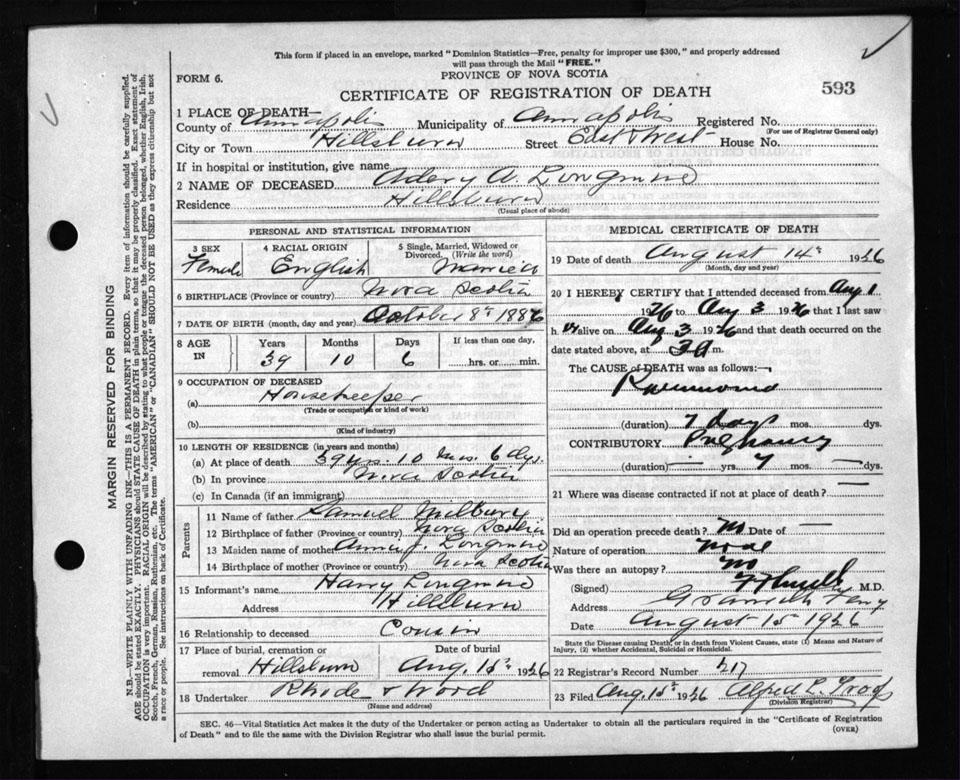 This form if placed in an envelope, marked "Dominion Statistics—Free, penalty for improper use $300," and properly addressed
will pass through the Mail "FREE."
FORM 6.
PROVINCE OF NOVA SCOTIA
CERTIFICATE OF REGISTRATION OF DEATH
593
1 PLACE OF DEATH—
County of Annapolis Municipality of Annapolis Registered No.
(For use of Registrar General only)
City or Town Hillsburn Street East & West House No.
If in hospital or institution, give name
2 NAME OF DECEASED A. Longmire
Residence Hillsburn
(Usual place of abode)
PERSONAL AND STATISTICAL INFORMATION
3 SEX Female
4 RACIAL ORIGIN English
5 Single, Married, Widowed or Divorced. (Write the word) Married
6 BIRTHPLACE (Province or country) Nova Scotia
7 DATE OF BIRTH (month, day and year) October 8th 1886
8 AGE IN Years Months Days If less than one day,
39 10 6 hrs. or min.
9 OCCUPATION OF DECEASED
(a) Housekeeper
(Trade or occupation or kind of work)
(b)
(Kind of industry)
10 LENGTH OF RESIDENCE (in years and months)
(a) At place of death 39 yrs. 10 mos. 6 dys.
(b) In province Nova Scotia
(c) In Canada (if an immigrant)
Parents
11 Name of father Samuel Milbury
12 Birthplace of father (Province or country) Nova Scotia
13 Maiden name of mother Longmire
14 Birthplace of mother (Province or country) Nova Scotia
15 Informant's name Harry Longmire
Address Hillsburn
16 Relationship to deceased Cousin
17 Place of burial, cremation or removal Hillsburn Date of burial Aug. 15th 1926
18 Undertaker Rhode & Wood
(Name and address)
MEDICAL CERTIFICATE OF DEATH
19 Date of death August 14th 1926
(Month, day and year)
20 I HEREBY CERTIFY that I attended deceased from Aug 1
1926 to Aug 3 1926 that I last saw
h er alive on Aug 3 1926 and that death occurred on
date stated above, at m.
The CAUSE of DEATH was as follows:—
Pneumonia
(duration) 7 days mos. dys.
CONTRIBUTORY Pregnancy
(duration) — yrs. 7 mos. — dys.
21 Where was disease contracted if not at place of death? —
Did an operation precede death? no Date of —
Nature of operation none
Was there an autopsy? no
(Signed) M.D.
Address Granville Ferry
Date August 15 1926
State the Disease causing Death, or in death from Violent Causes, state (1) Means and Nature of
Injury, (2) whether Accidental, Suicidal or Homicidal.
22 Registrar's Record Number 217
23 Filed Aug. 15th 1926 Alfred L.
(Division Registrar)
SEC. 46—Vital Statistics Act makes it the duty of the Undertaker or person acting as Undertaker to obtain all the particulars required in the "Certificate of Registration
of Death" and to file the same with the Division Registrar who shall issue the burial permit.
(OVER)
MARGIN RESERVED FOR BINDING
N.B.—WRITE PLAINLY WITH UNFADING INK—THIS IS A PERMANENT RECORD. Every item of information should be carefully supplied.
AGE should be stated EXACTLY. PHYSICIANS should STATE CAUSE OF DEATH in plain terms, so that it may be properly classified. Exact statement of
OCCUPATION is very important. RACIAL ORIGIN will be described by stating to what people or tongue the deceased person belonged, whether English, Irish,
Scotch, French, German, Russian, Ruthenian, etc. The terms "AMERICAN" or "CANADIAN" SHOULD NOT BE USED as they express citizenship but not
a race or people. See instructions on back of Certificate.